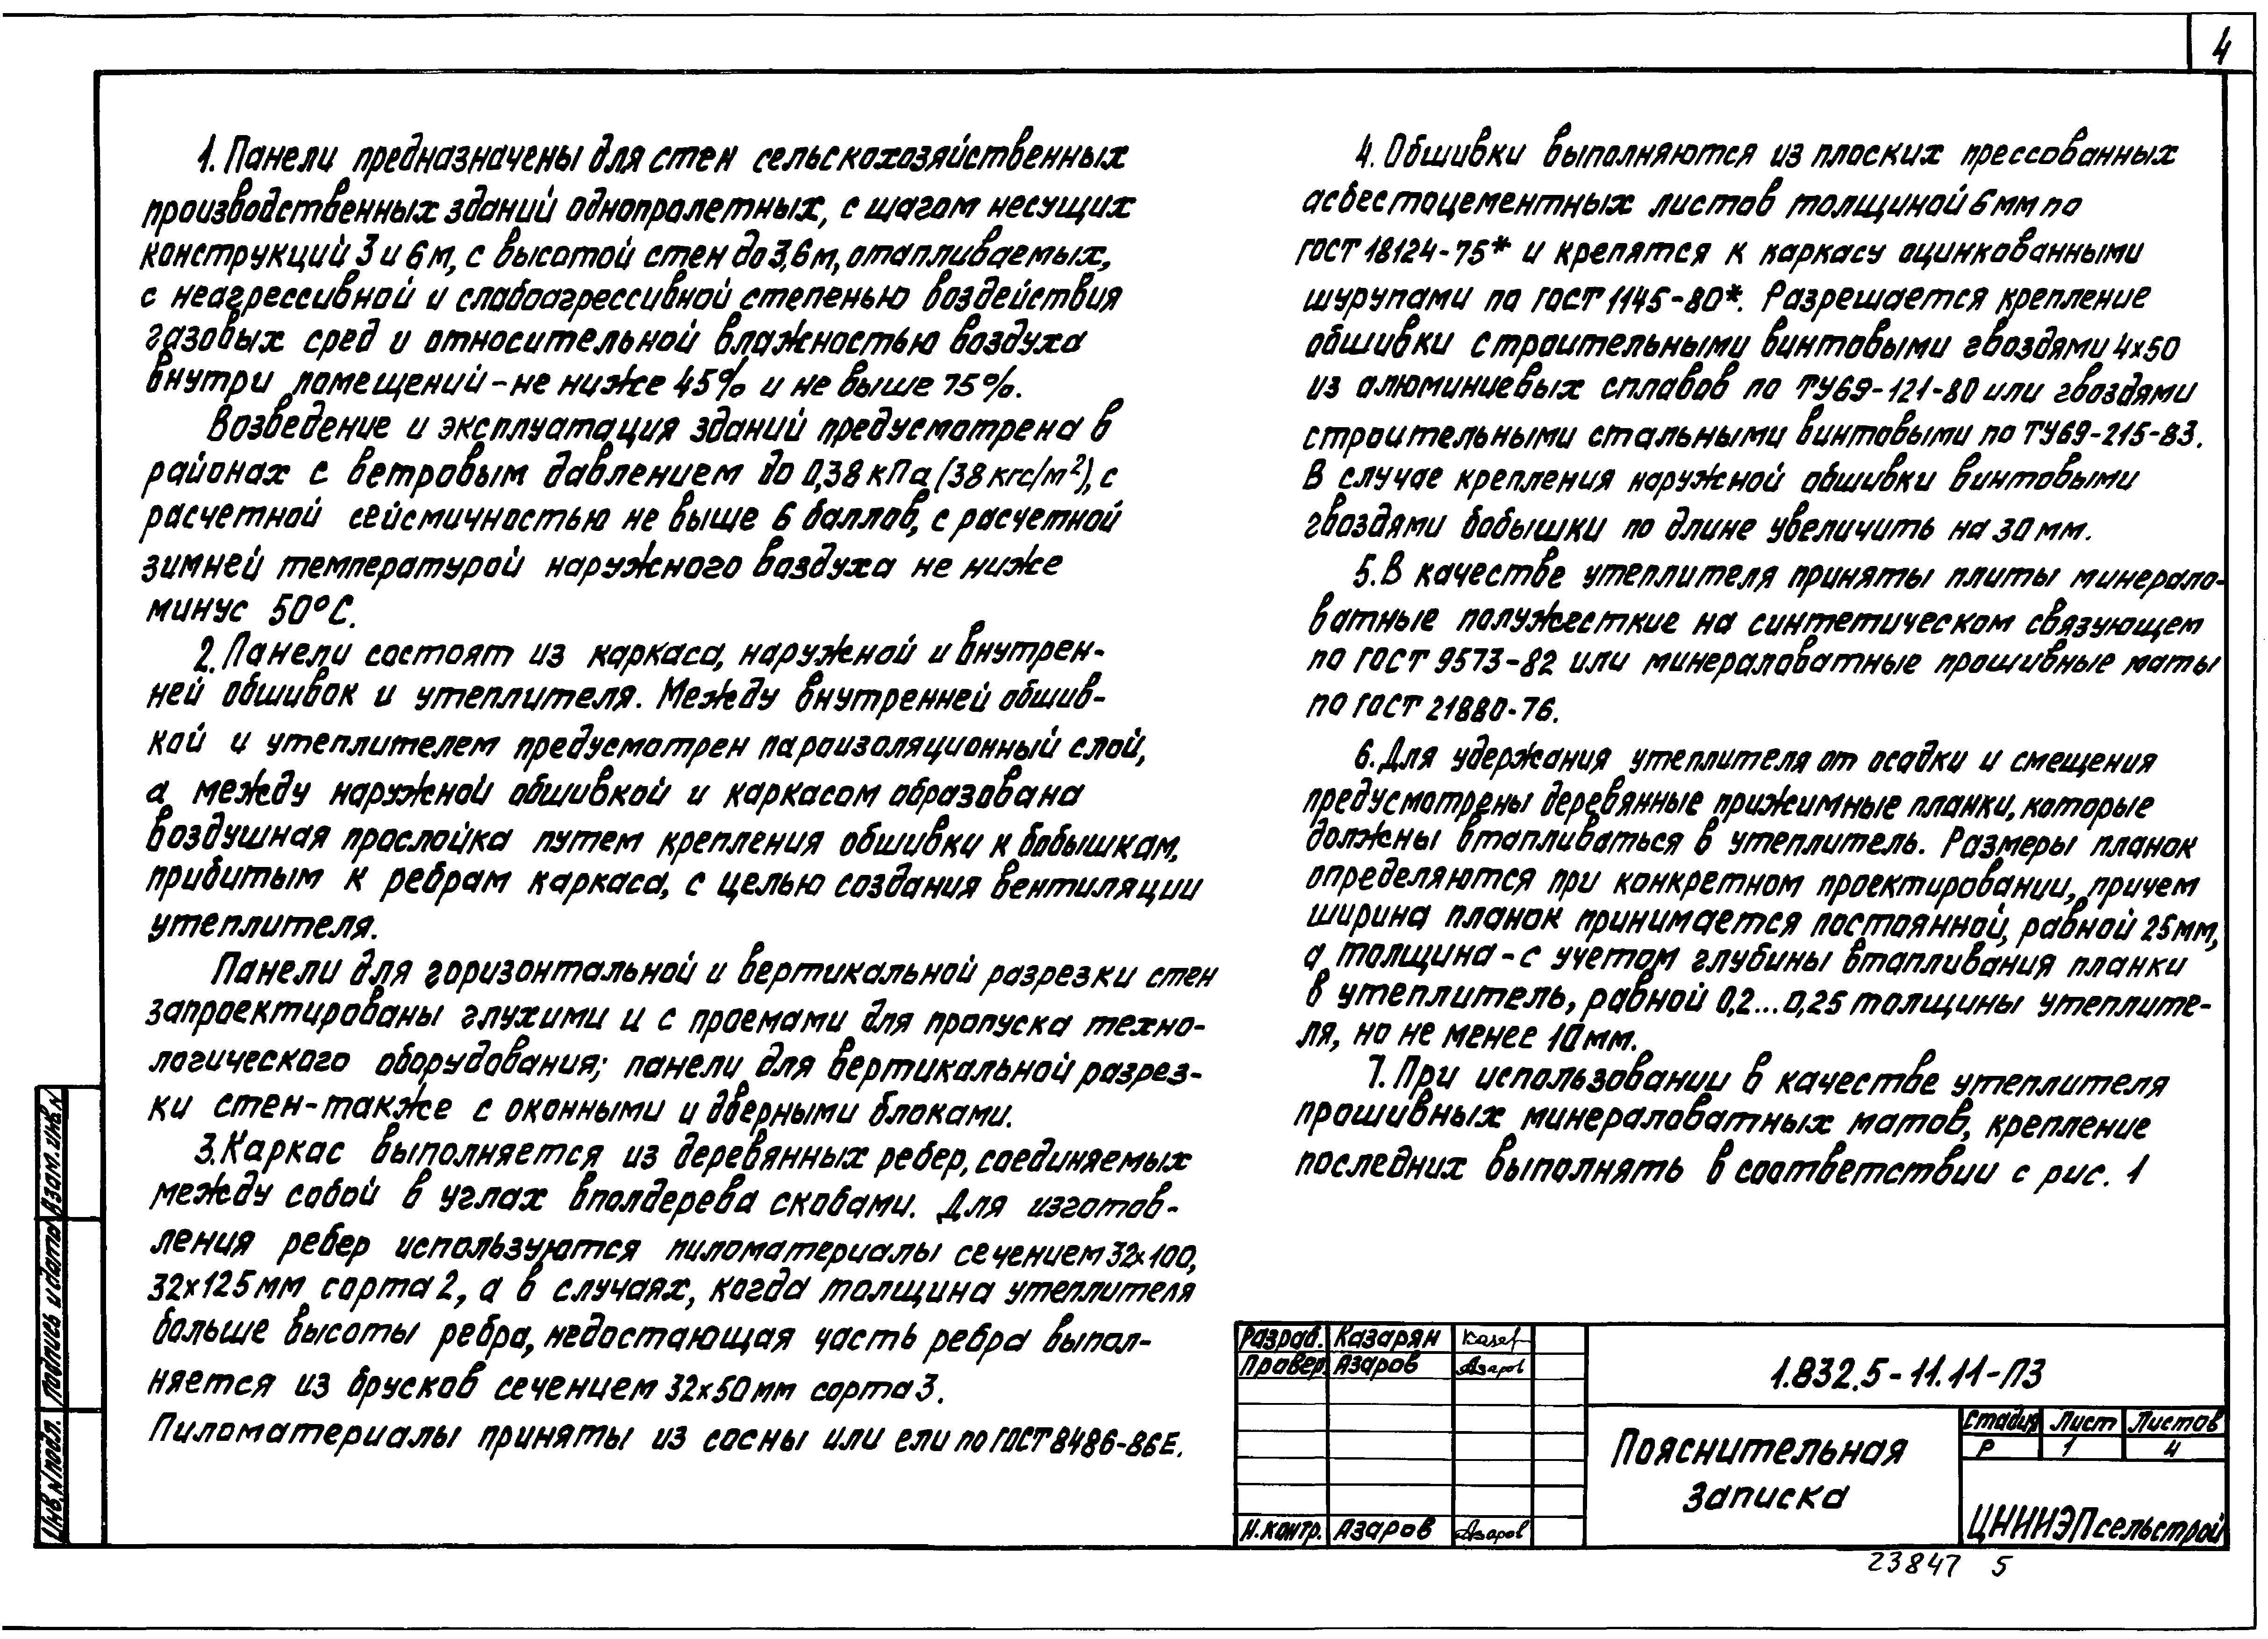 4
1. Панели предназначены для стен сельскохозяйственных
производственных зданий однопролетных, с шагом несущих
конструкций 3 и 6 м, с высотой стен до 3,6 м, отапливаемых,
с неагрессивной и слабоагрессивной степенью воздействия
газовых сред и относительной влажностью воздуха
внутри помещений - не ниже 45% и не выше 75%.
Возведение и эксплуатация зданий предусмотрена в
районах с ветровым давлением до 0,38 кПа (38 кгс/м²), с
расчетной сейсмичностью не выше 6 баллов, с расчетной
зимней температурой наружного воздуха не ниже
минус 50°С.
2. Панели состоят из каркаса, наружной и внутрен-
ней обшивок и утеплителя. Между внутренней обшив-
кой и утеплителем предусмотрен пароизоляционный слой,
а между наружной обшивкой и каркасом образована
воздушная прослойка путем крепления обшивки к бобышкам,
прибитым к ребрам каркаса, с целью создания вентиляции
утеплителя.
Панели для горизонтальной и вертикальной разрезки стен
запроектированы глухими и с проемами для пропуска техно-
логического оборудования; панели для вертикальной разрез-
ки стен - также с оконными и дверными блоками.
3. Каркас выполняется из деревянных ребер, соединяемых
между собой в углах вполдерева скобами. Для изготов-
ления ребер используются пиломатериалы сечением 32х100,
32х125 мм сорта 2, а в случаях, когда толщина утеплителя
больше высоты ребра, недостающая часть ребра выпол-
няется из брусков сечением 32х50 мм сорта 3.
Пиломатериалы приняты из сосны или ели по ГОСТ 8486-86Е.
4. Обшивки выполняются из плоских прессованных
асбестоцементных листов толщиной 6 мм по
ГОСТ 18124-75* и крепятся к каркасу оцинкованными
шурупами по ГОСТ 1145-80*. Разрешается крепление
обшивки строительными винтовыми гвоздями 4х50
из алюминиевых сплавов по ТУ69-121-80 или гвоздями
строительными стальными винтовыми по ТУ69-215-83.
В случае крепления наружной обшивки винтовыми
гвоздями бобышки по длине увеличить на 30 мм.
5. В качестве утеплителя приняты плиты минерало-
ватные полужесткие на синтетическом связующем
по ГОСТ 9573-82 или минераловатные прошивные маты
по ГОСТ 21880-76.
6. Для удержания утеплителя от осадки и смещения
предусмотрены деревянные прижимные планки, которые
должны втапливаться в утеплитель. Размеры планок
определяются при конкретном проектировании, причем
ширина планок принимается постоянной, равной 25 мм,
а толщина - с учетом глубины втапливания планки
в утеплитель, равной 0,2...0,25 толщины утеплите-
ля, но не менее 10 мм.
7. При использовании в качестве утеплителя
прошивных минераловатных матов, крепление
последних выполнять в соответствии с рис. 1
Взам. инв. №
Подпись и дата
Инв. № подл.
Разраб. Казарян
Провер. Азаров Азаров
Н. контр. Азаров Азаров
1.832.5-11.11-ПЗ
Пояснительная
записка
Стадия Лист Листов
Р 1 4
ЦНИИЭПсельстрой
23847 5